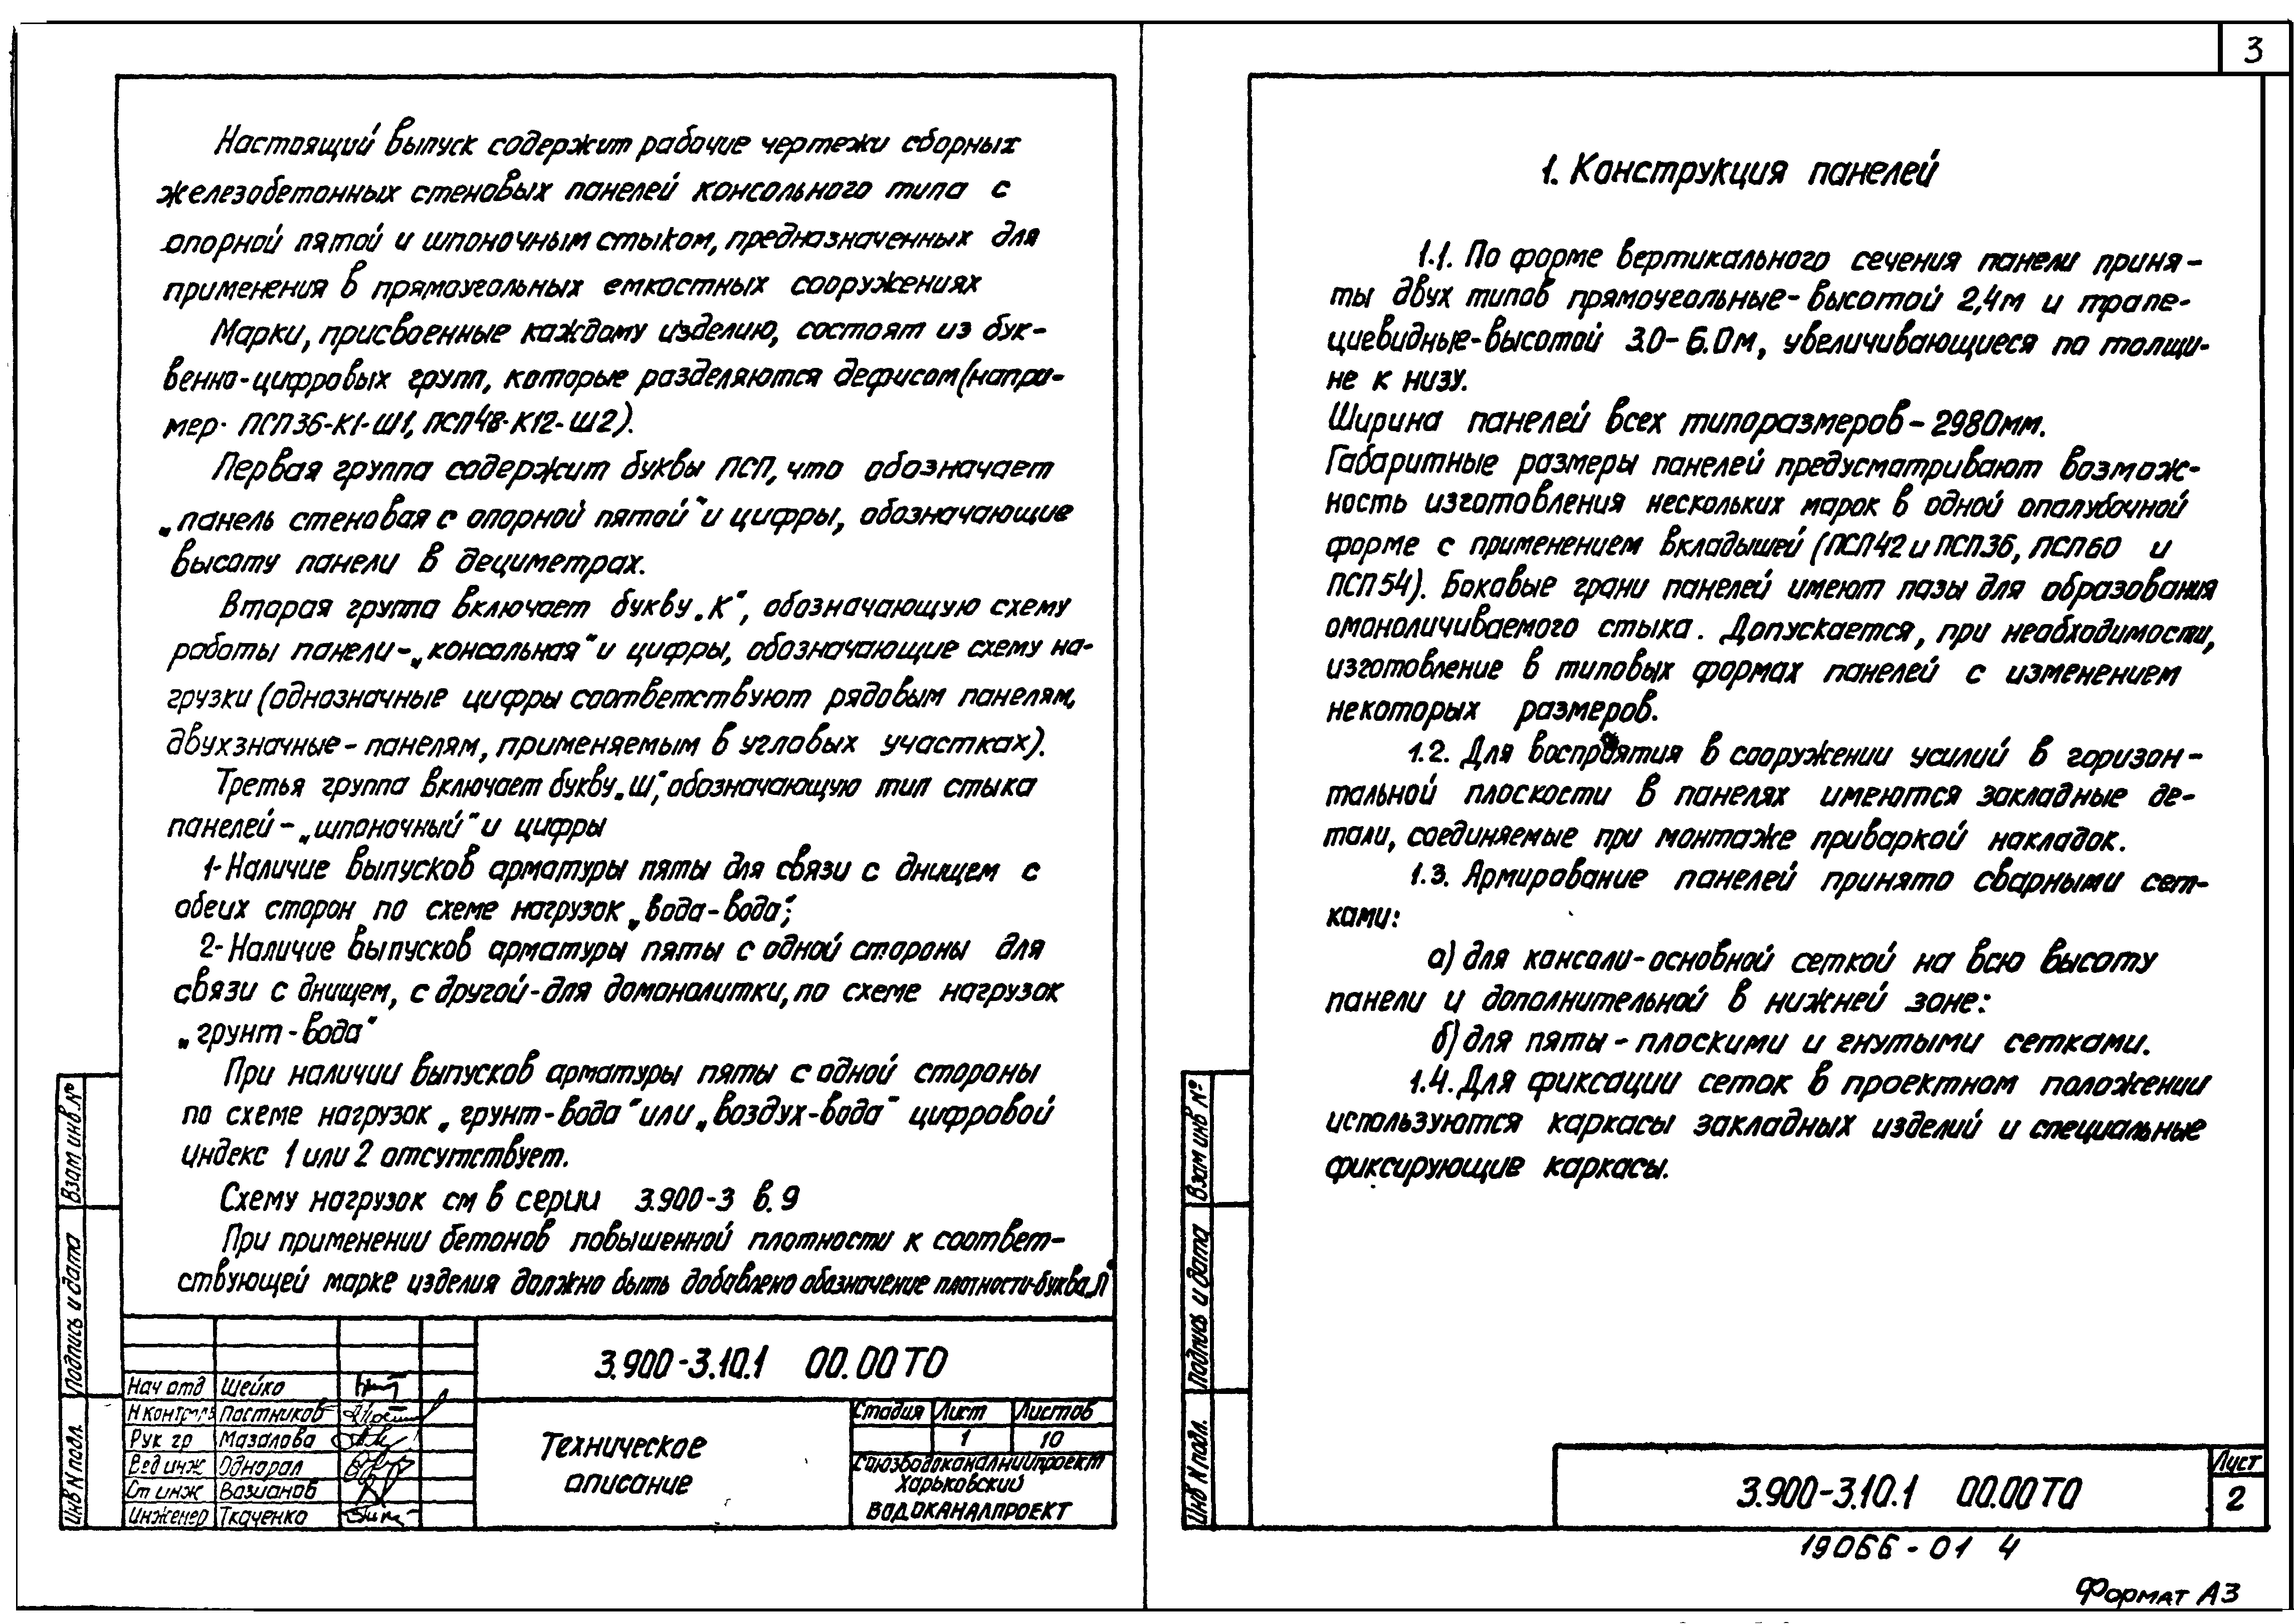 3
Настоящий выпуск содержит рабочие чертежи сборных
железобетонных стеновых панелей консольного типа с
опорной пятой и шпоночным стыком, предназначенных для
применения в прямоугольных емкостных сооружениях
Марки, присвоенные каждому изделию, состоят из бук-
венно-цифровых групп, которые разделяются дефисом (напри-
мер· ПСП36-К1-Ш1, ПСП48-К12-Ш2).
Первая группа содержит буквы ПСП, что обозначает
„панель стеновая с опорной пятой" и цифры, обозначающие
высоту панели в дециметрах.
Вторая группа включает букву „К", обозначающую схему
работы панели-„консольная" и цифры, обозначающие схему на-
грузки (однозначные цифры соответствуют рядовым панелям,
двухзначные-панелям, применяемым в угловых участках).
Третья группа включает букву „Ш", обозначающую тип стыка
панелей-„шпоночный" и цифры
1-Наличие выпусков арматуры пяты для связи с днищем с
обеих сторон по схеме нагрузок „вода-вода";
2-Наличие выпусков арматуры пяты с одной стороны для
связи с днищем, с другой-для домонолитки, по схеме нагрузок
„грунт-вода"
При наличии выпусков арматуры пяты с одной стороны
по схеме нагрузок „грунт-вода" или „воздух-вода" цифровой
индекс 1 или 2 отсутствует.
Схему нагрузок см в серии 3.900-3 в.9
При применении бетонов повышенной плотности к соответ-
ствующей марке изделия должно быть добавлено обозначение плотности-буква „П"
Взам инв.№
Подпись и дата
Инв N подл.
Нач отд Шейко
Н контроль Постников
Рук гр Мазалова
Вед инж Однорал
Ст инж Вазианов
Инженер Ткаченко
3.900-3.10.1 00.00ТО
Техническое
описание
Стадия Лист Листов
1 10
Союзводоканалниипроект
Харьковский
ВОДОКАНАЛПРОЕКТ
1. Конструкция панелей
1.1. По форме вертикального сечения панели приня-
ты двух типов прямоугольные-высотой 2,4м и трапе-
циевидные-высотой 3.0-6.0м, увеличивающиеся по толщи-
не к низу.
Ширина панелей всех типоразмеров-2980мм.
Габаритные размеры панелей предусматривают возмож-
ность изготовления нескольких марок в одной опалубочной
форме с применением вкладышей (ПСП42 и ПСП36, ПСП60 и
ПСП54). Боковые грани панелей имеют пазы для образования
омоноличиваемого стыка. Допускается, при необходимости,
изготовление в типовых формах панелей с изменением
некоторых размеров.
1.2. Для восприятия в сооружении усилий в горизон-
тальной плоскости в панелях имеются закладные де-
тали, соединяемые при монтаже приваркой накладок.
1.3. Армирование панелей принято сварными сет-
ками:
а) для консоли-основной сеткой на всю высоту
панели и дополнительной в нижней зоне:
б) для пяты-плоскими и гнутыми сетками.
1.4. Для фиксации сеток в проектном положении
используются каркасы закладных изделий и специальные
фиксирующие каркасы.
Взам инв №
Подпись и дата
Инв N подл.
3.900-3.10.1 00.00ТО
Лист
2
19066-01 4
Формат А3